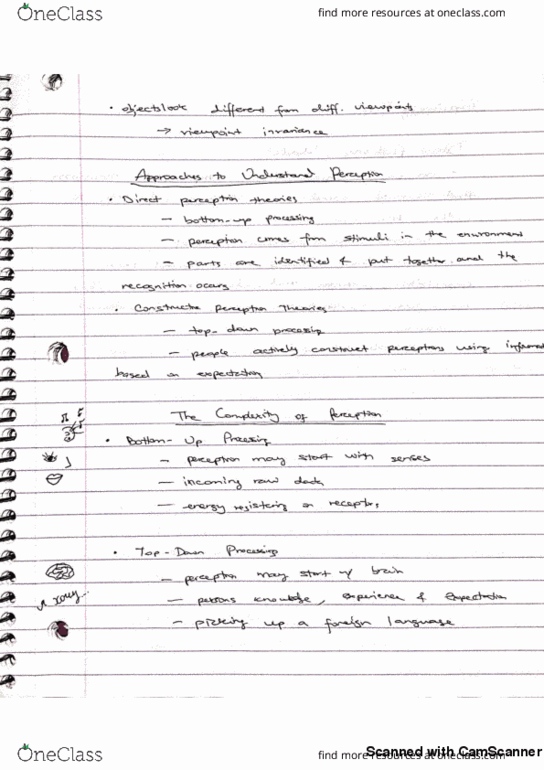 OneClass
find more resources at oneclass.com
• objects look different from diff. viewpoints
→ viewpoint invariance
Approaches to Understand Perception
• Direct perception theories
– bottom-up processing
– perception comes from stimuli in the environment
– parts are identified & put together and the
recognition occurs
• Constructive Perception Theories
– top-down processing
– people actively construct perceptions using
based on expectation
The Complexity of Perception
• Bottom-Up Processing
– perception may start with senses
– incoming raw data
– energy registering on receptors
• Top-Down Processing
– perception may start w/ brain
– persons knowledge, experience & expectation
– picking up a foreign language
OneClass
find more resources at oneclass.com
Scanned with CamScanner